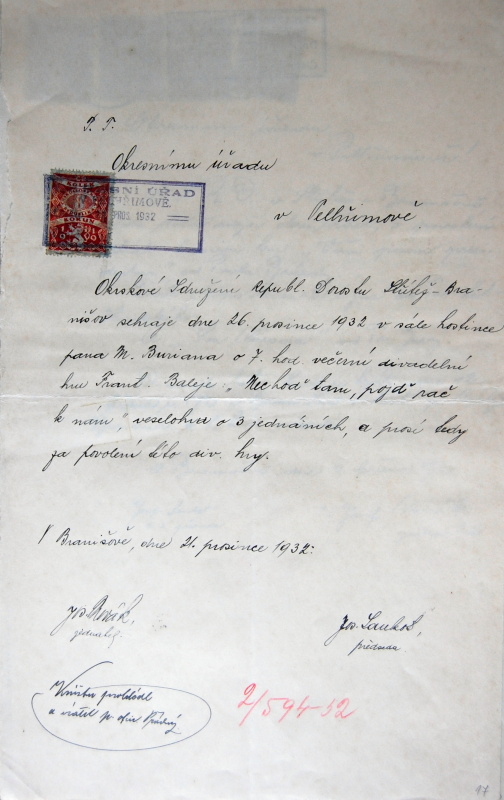 P. T.
Okresnímu úřadu
SNÍ ÚŘAD
PROS. 1932
v Pelhřimově
Okrskové Sdružení Republ. Dorostu Střítež-Bra-
nišov sehraje dne 26. prosince 1932 v sále hostince
pana M. Buriana o 7. hod. večerní divadelní
hru Frant. Baleje „Nechoď tam, pojď rač
k nám", veselohru o 3 jednáních, a prosí tedy
za povolení této div. hry.
V Branišově, dne 21. prosince 1932.
Jos. Novák,
jednatel.
Jos.
předseda
Knihu prohlédl
a vrátil p.
2/594-32
97